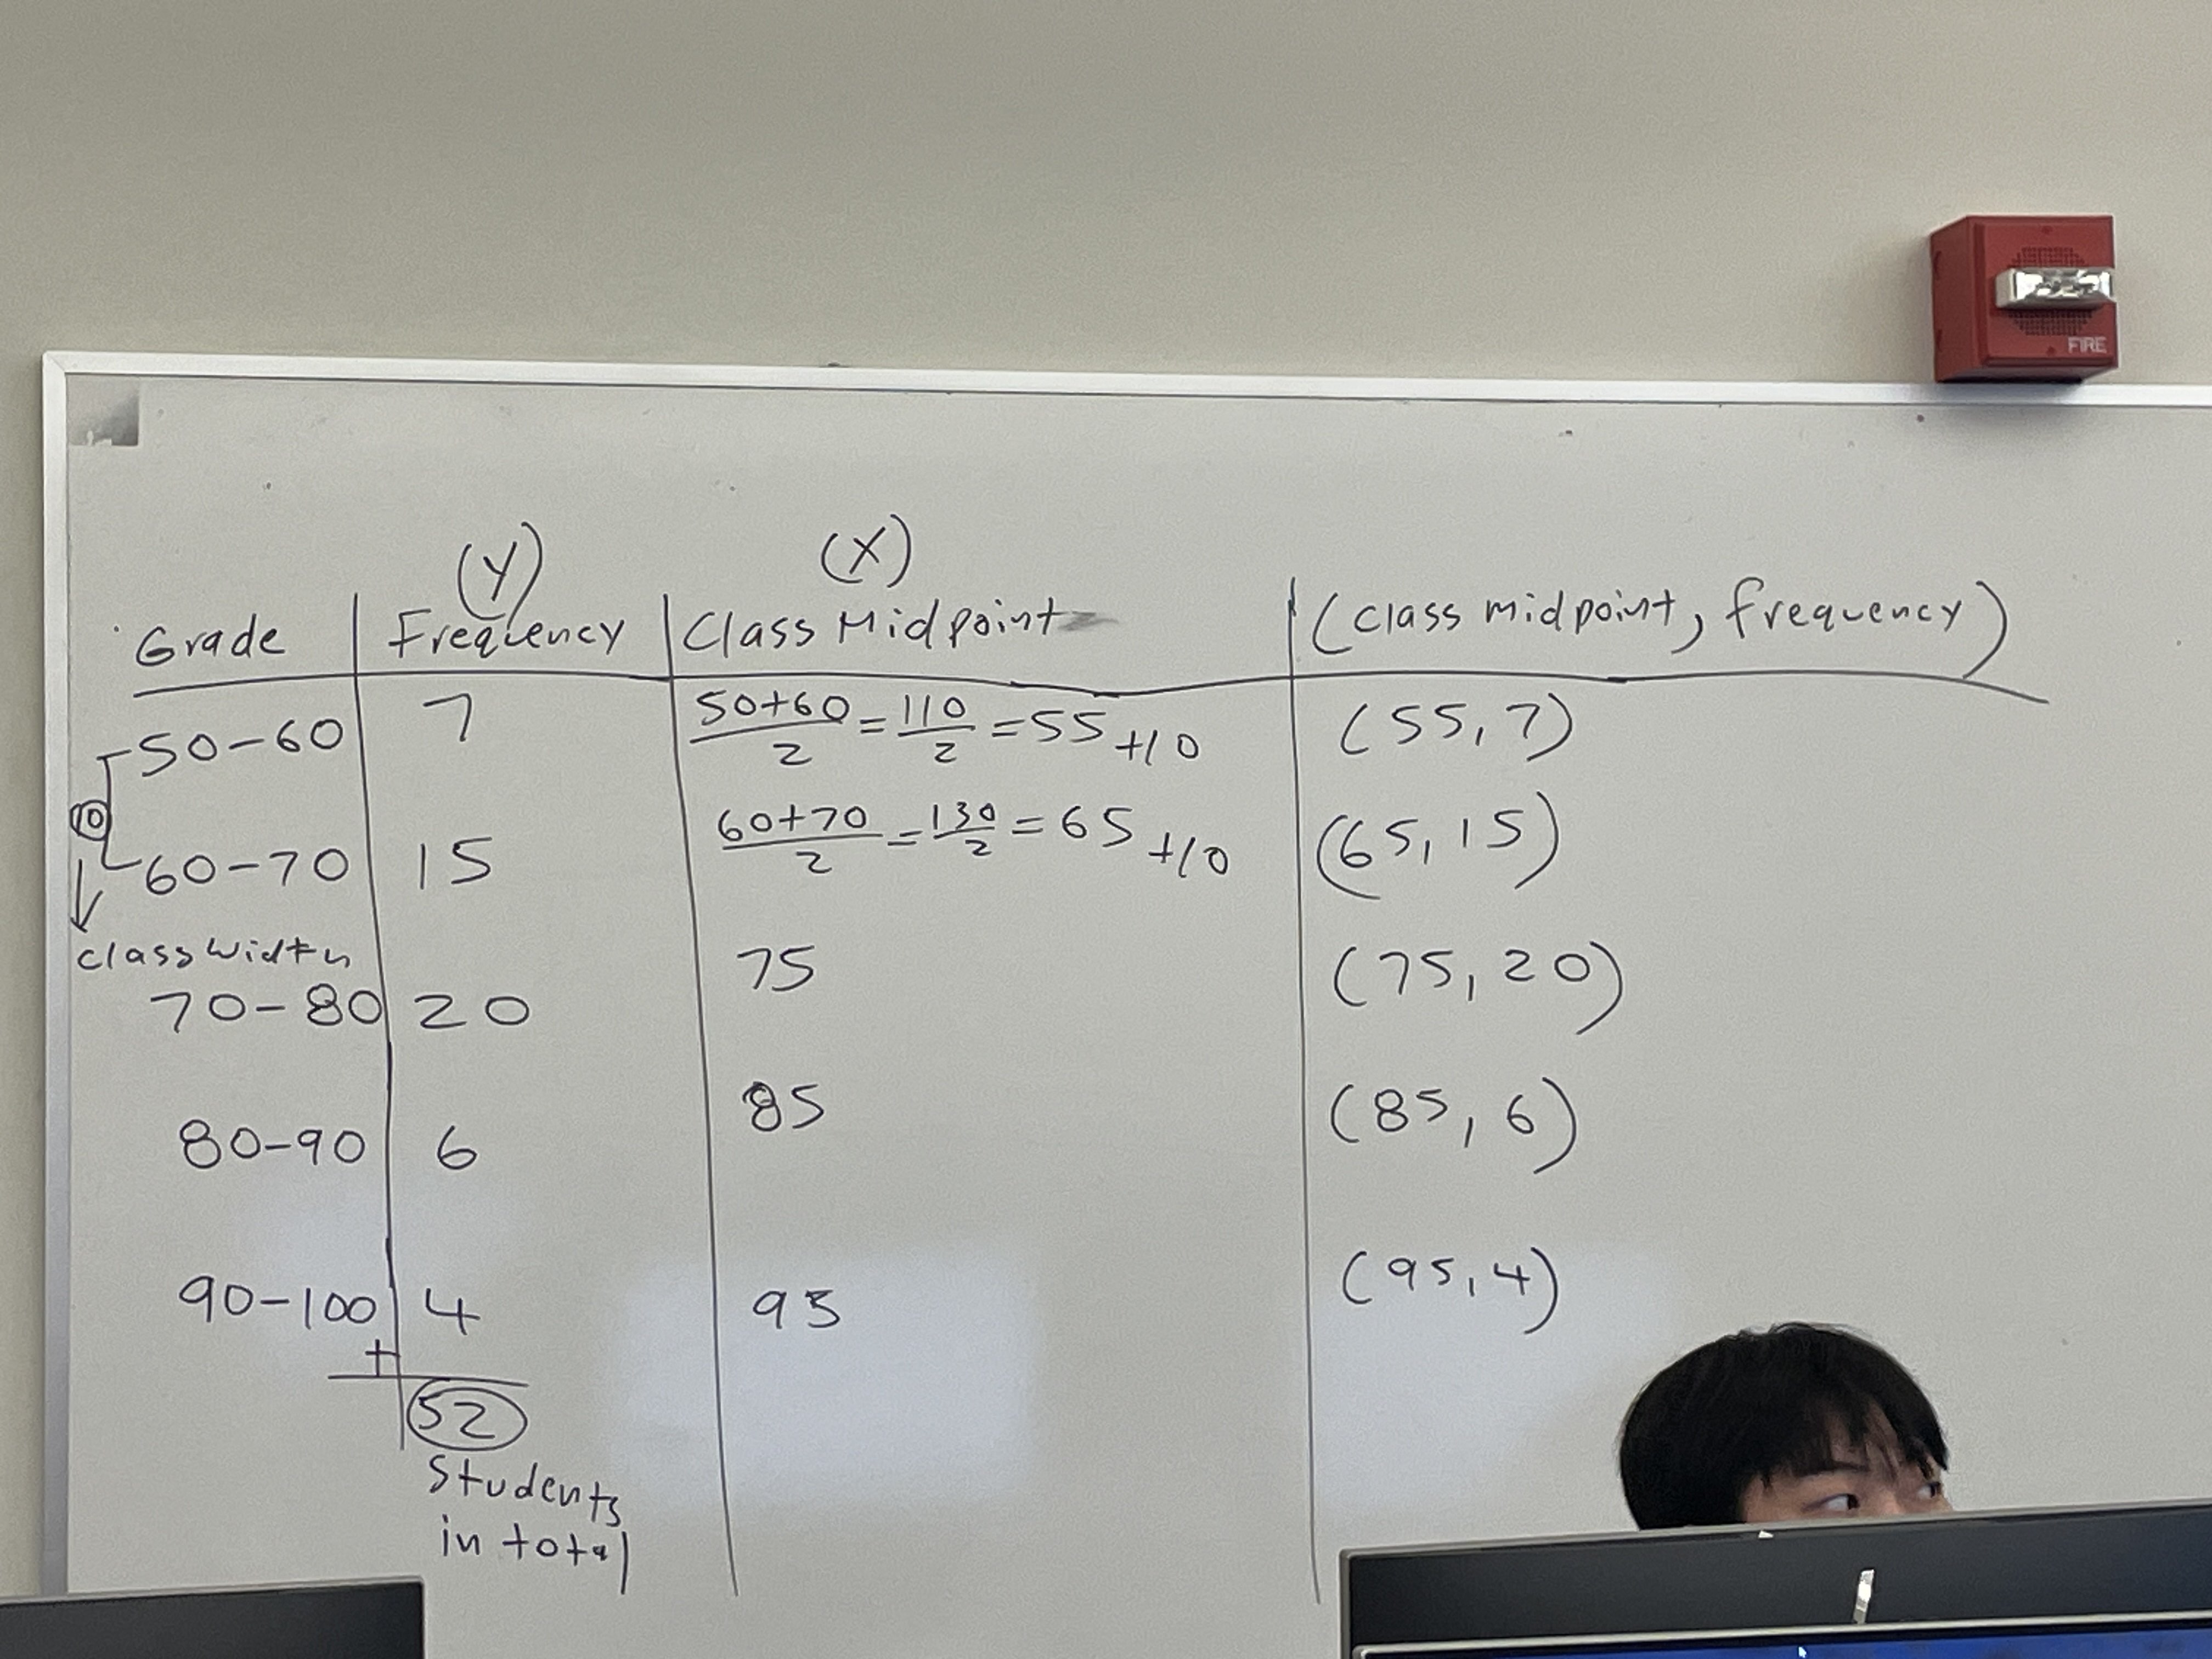 FIRE
(Y) (X)
Grade Frequency Class Midpoint (class midpoint, frequency)
50-60 7 50+60/2 = 110/2 = 55 +10 (55, 7)
10
60-70 15 60+70/2 = 130/2 = 65 +10 (65, 15)
class width
70-80 20 75 (75, 20)
80-90 6 85 (85, 6)
90-100 4 95 (95, 4)
+
52
Students
in total